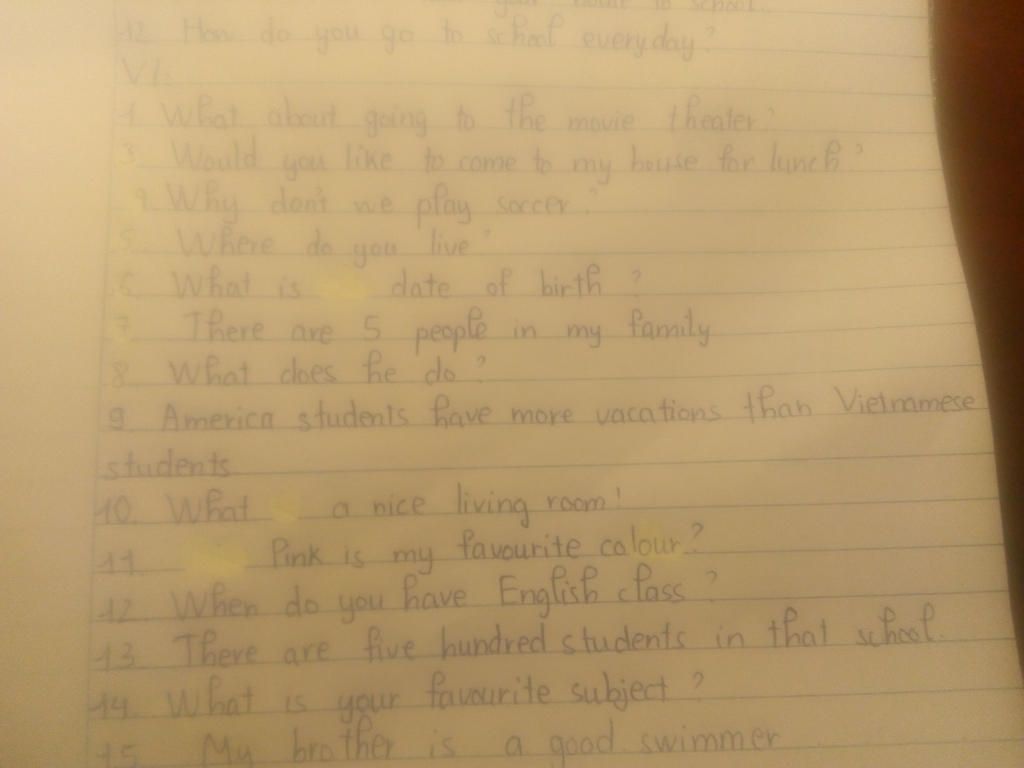 your house to school.
12. How do you go to school everyday?
VI:
1. What about going to the movie theater?
3. Would you like to come to my house for lunch?
4. Why don't we play soccer?
5. Where do you live?
6. What is date of birth?
7. There are 5 people in my family
8. What does he do?
9. America students have more vacations than Vietnamese
students
10. What a nice living room!
11. Pink is my favourite colour?
12. When do you have English class?
13. There are five hundred students in that school.
14. What is your favourite subject?
15. My brother is a good swimmer